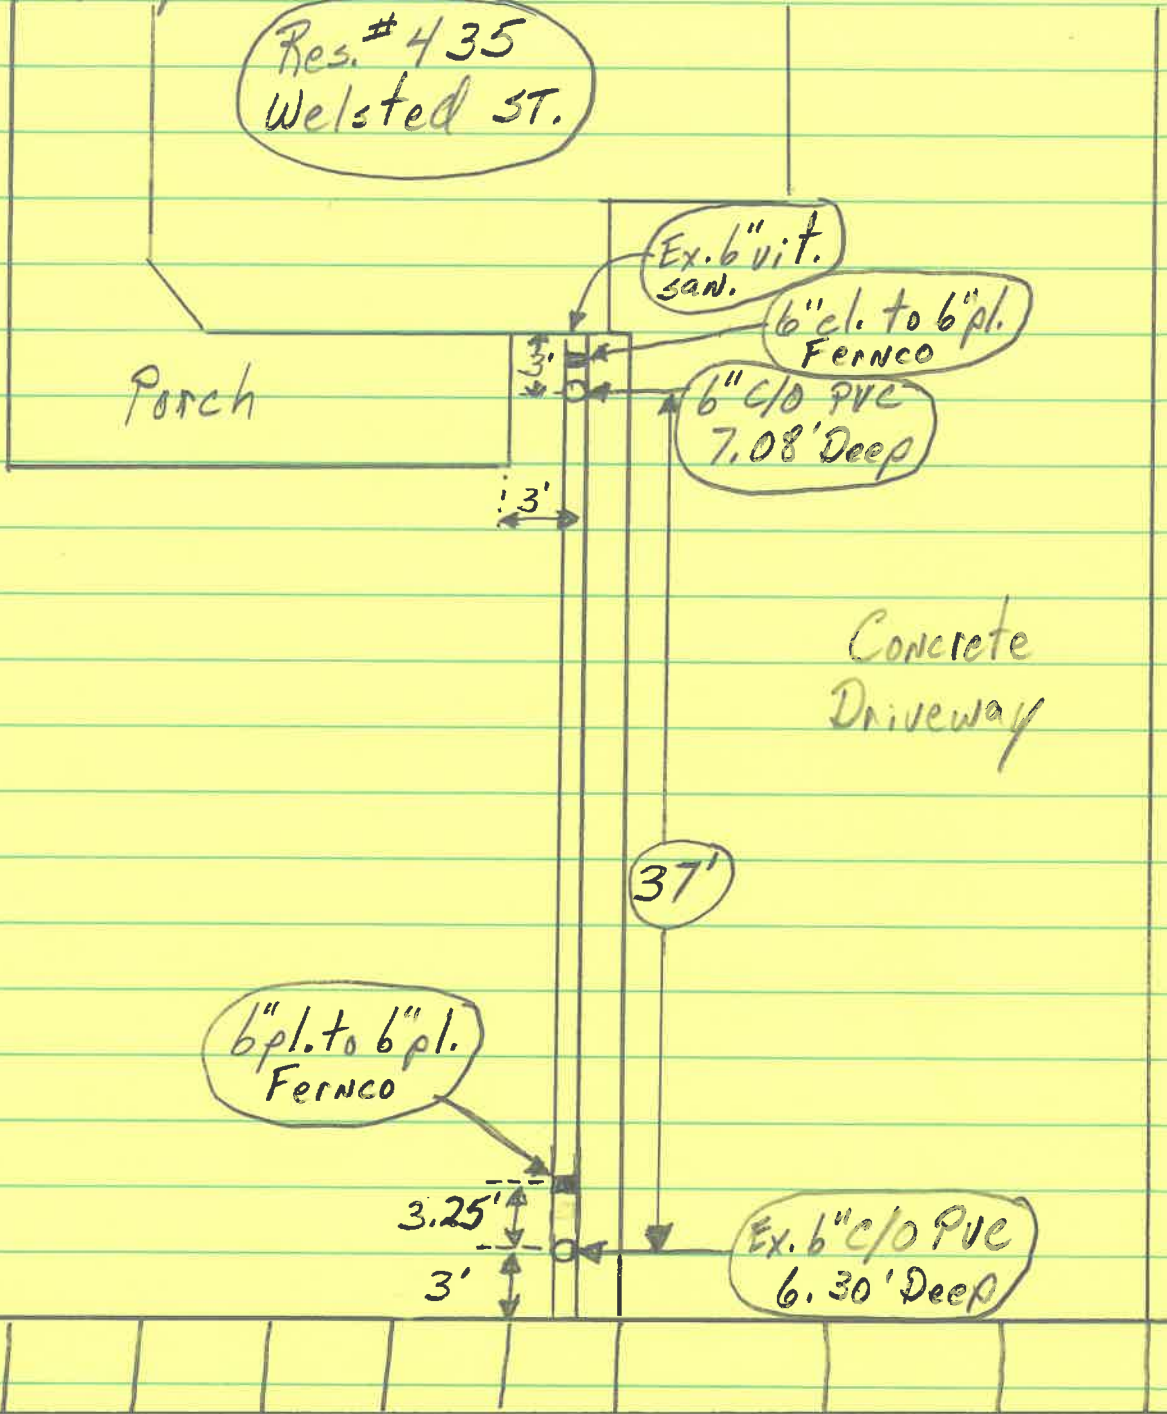 Res. # 435
Welsted ST.
Ex. 6" vit.
san.
6" cl. to 6" pl.
Fernco
3'
Porch
6" C/O PVC
7.08' Deep
3'
Concrete
Driveway
37'
6" pl. to 6" pl.
Fernco
3.25'
Ex. 6" C/O PVC
6.30' Deep
3'